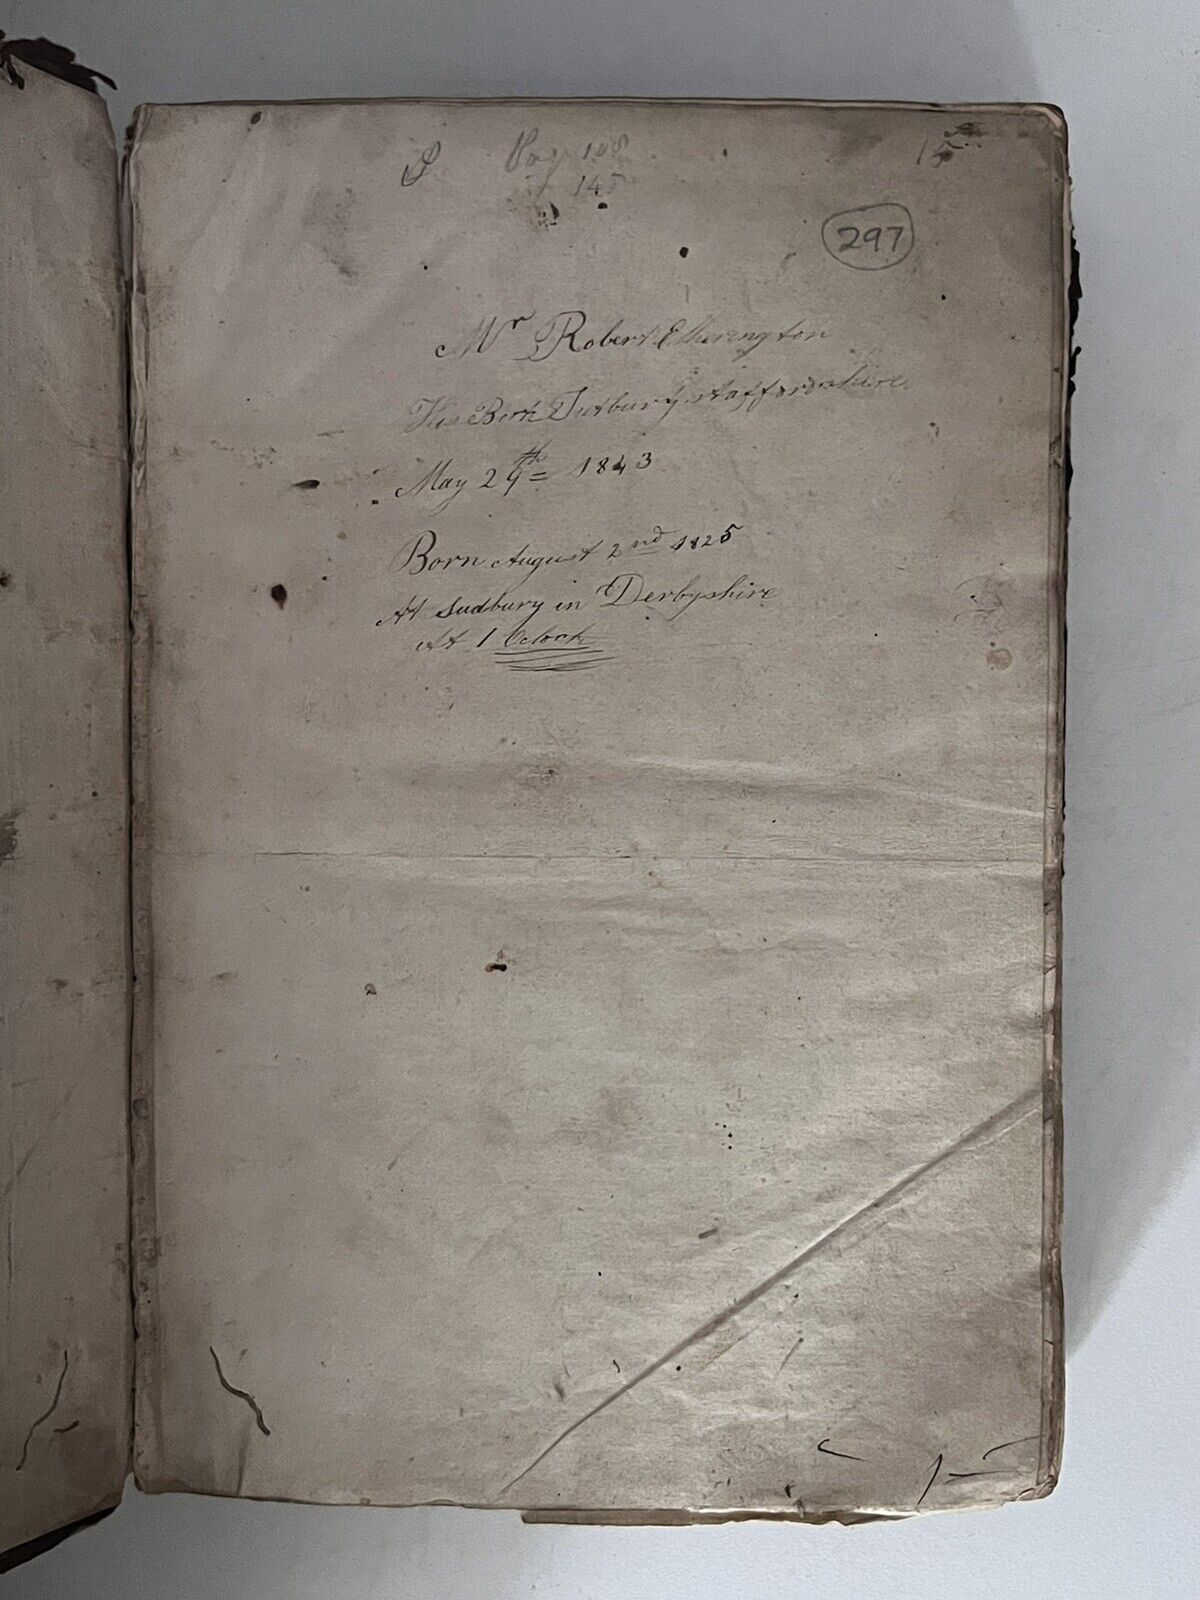 108
145
15
297
Mr Robert Etherington
His Book Tutbury Staffordshire
May 29th 1843
Born August 2nd 1825
At Sudbury in Derbyshire
At 1 Oclock